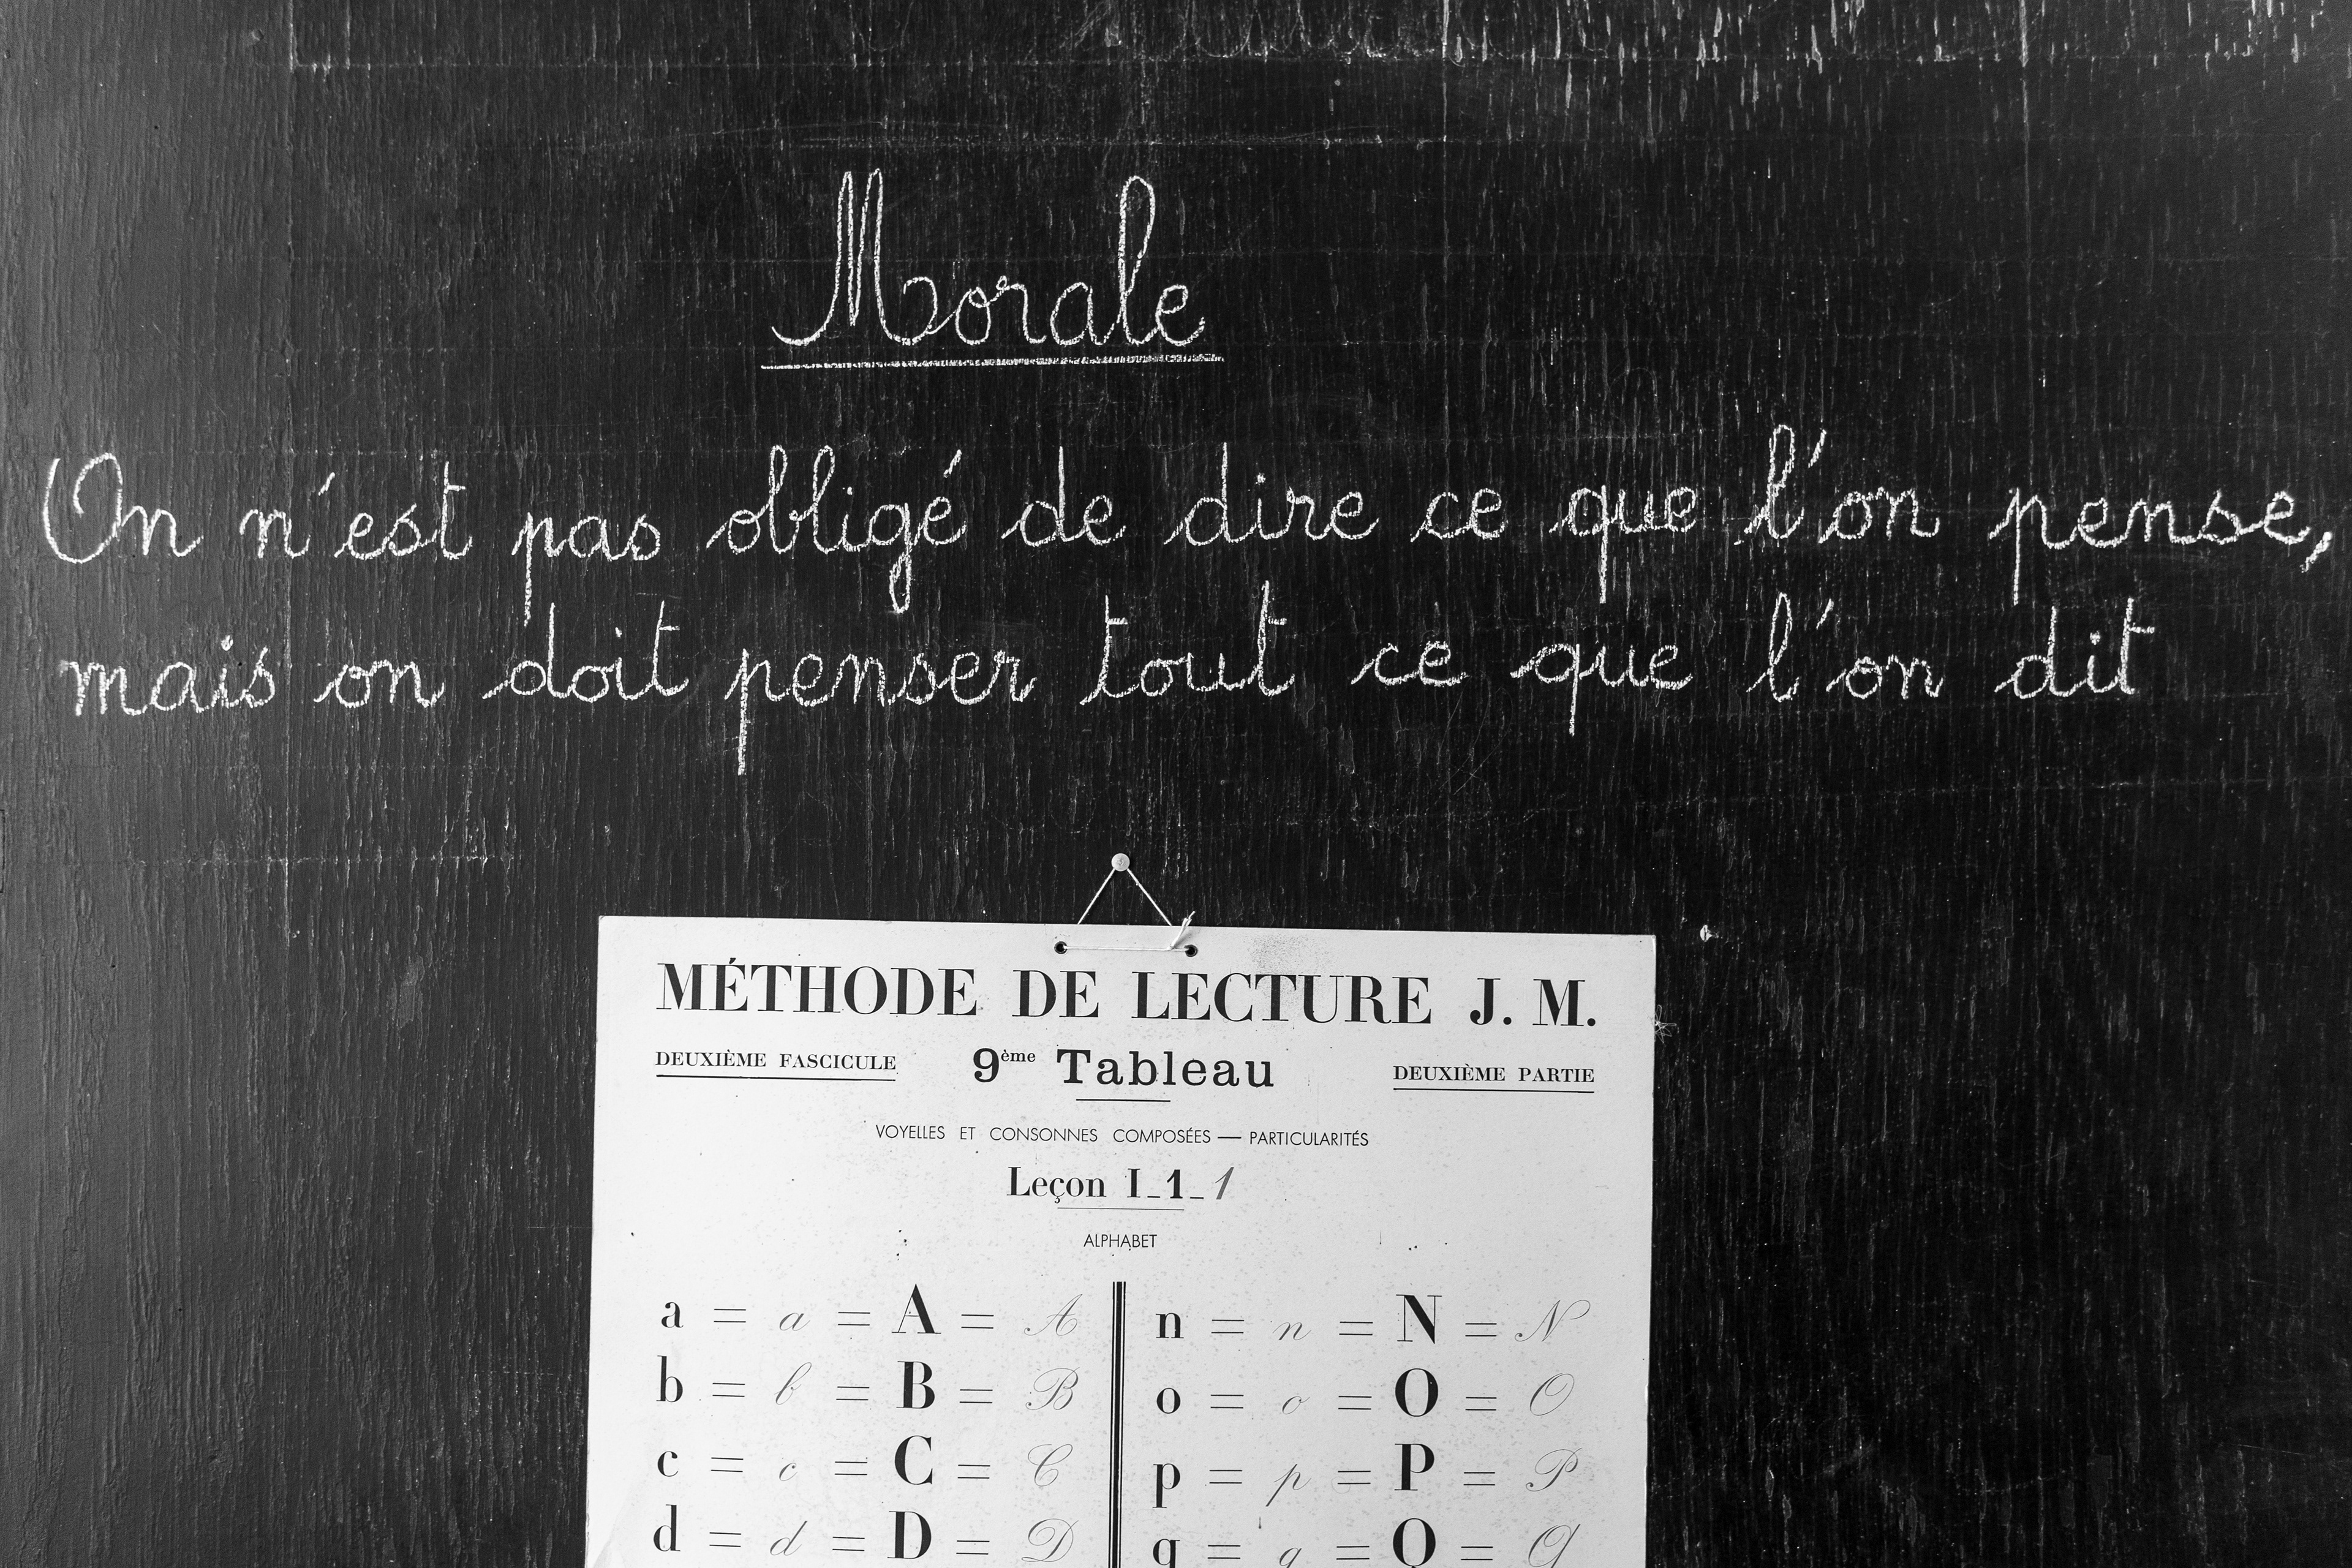 Morale
On n'est pas obligé de dire ce que l'on pense,
mais on doit penser tout ce que l'on dit
MÉTHODE DE LECTURE J. M.
DEUXIÈME FASCICULE 9ème Tableau DEUXIÈME PARTIE
VOYELLES ET CONSONNES COMPOSÉES — PARTICULARITÉS
Leçon I_1_1
ALPHABET
a = a = A = A n = n = N = N
b = b = B = B o = o = O = O
c = c = C = C p = p = P = P
d = d = D = D q = q = Q = Q